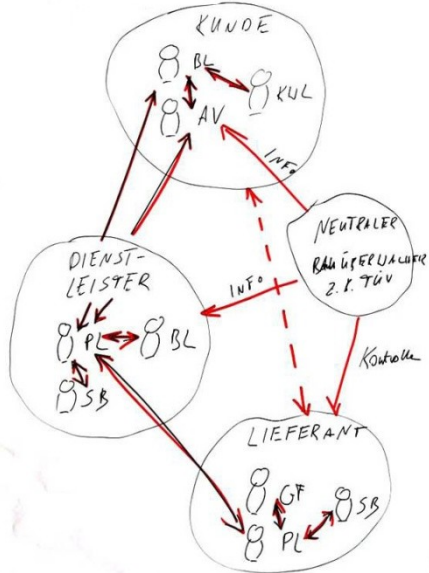 KUNDE
BL
KUL
AV
INFO
NEUTRALER
BAUÜBERWACHER
Z.B. TÜV
DIENST-
LEISTER
INFO
PL
BL
SB
Kontrolle
LIEFERANT
GF
SB
PL